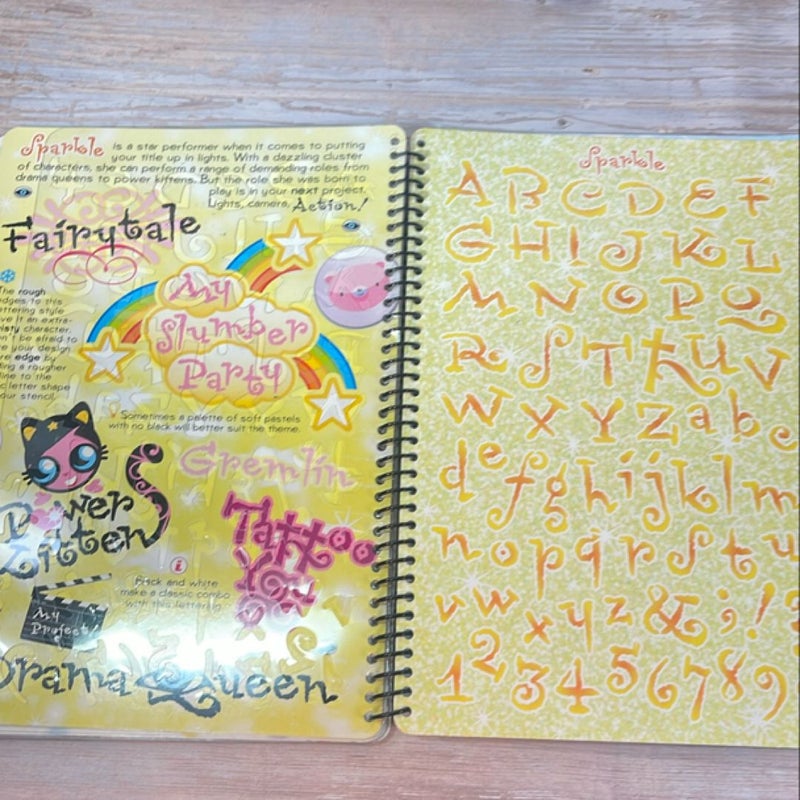 Sparkle is a star performer when it comes to putting
your title up in lights. With a dazzling cluster
of characters, she can perform a range of demanding roles from
drama queens to power kittens. But the role she was born to
play is in your next project.
Lights, camera, Action!
Fairytale
The rough
edges to this
lettering style
ve it an extra-
isty character.
n't be afraid to
e your design
re edge by
ng a rougher
line to the
c letter shape
our stencil.
My
Slumber
Party
Sometimes a palette of soft pastels
with no black will better suit the theme.
Gremlin
Power
Kitten
Tattoo
You
i
Black and white
make a classic combo
with this lettering
My
Project!
Drama Queen
Sparkle
A B C D E F
G H I J K L
M N O P Q
R S T R U V
W X Y Z a b c
d e f g h i j k l m
n o p q r s t u
v w x y z & ; ! ?
1 2 3 4 5 6 7 8 9